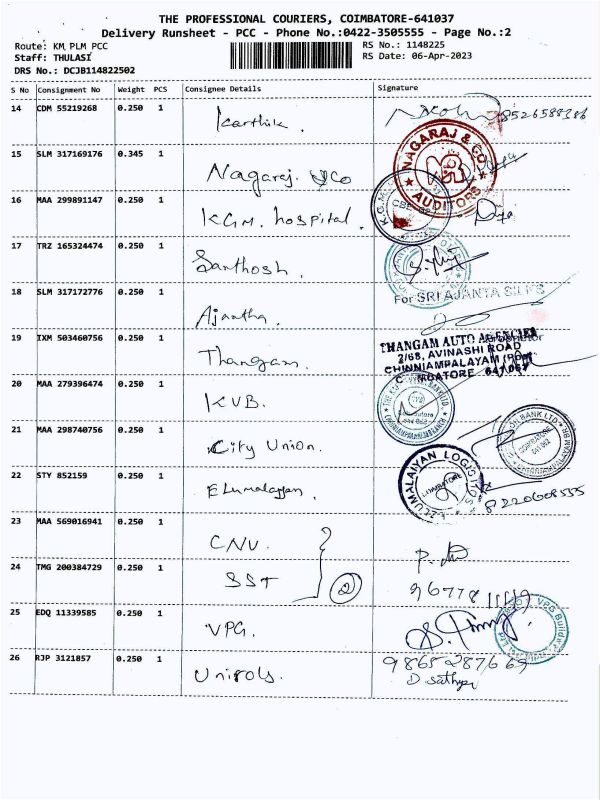 THE PROFESSIONAL COURIERS, COIMBATORE-641037
Delivery Runsheet - PCC - Phone No.:0422-3505555 - Page No.:2
Route: KM PLM PCC RS No.: 1148225
Staff: THULASI RS Date: 06-Apr-2023
DRS No.: DCJB114822502
S No Consignment No Weight PCS Consignee Details Signature
14 CDM 55219268 0.250 1 Karthik.
15 SLM 317169176 0.345 1 Nagaraj. & Co
NAGARAJ & CO
AUDITORS
16 MAA 299891147 0.250 1 K.G.M. hospital.
K.G.M.
17 TRZ 165324474 0.250 1 Santhosh.
18 SLM 317172776 0.250 1 Ajantha.
For SRI AJANTA SILKS
19 IXM 503460756 0.250 1 Thangam.
THANGAM AUTO AGENCIES
2/68, AVINASHI ROAD
CHINNIAMPALAYAM (PO)
COIMBATORE 641 062
20 MAA 279396474 0.250 1 KVB.
21 MAA 298740756 0.250 1 City Union.
22 STY 852159 0.250 1 Elumalayan.
COIMBATORE
8220608555
23 MAA 569016941 0.250 1 CNU.
24 TMG 200384729 0.250 1 SST 2
96778 11119
25 EDQ 11339585 0.250 1 VPG.
VPG Builders
26 RJP 3121857 0.250 1 Unirols.
9865287669
D. Sathya